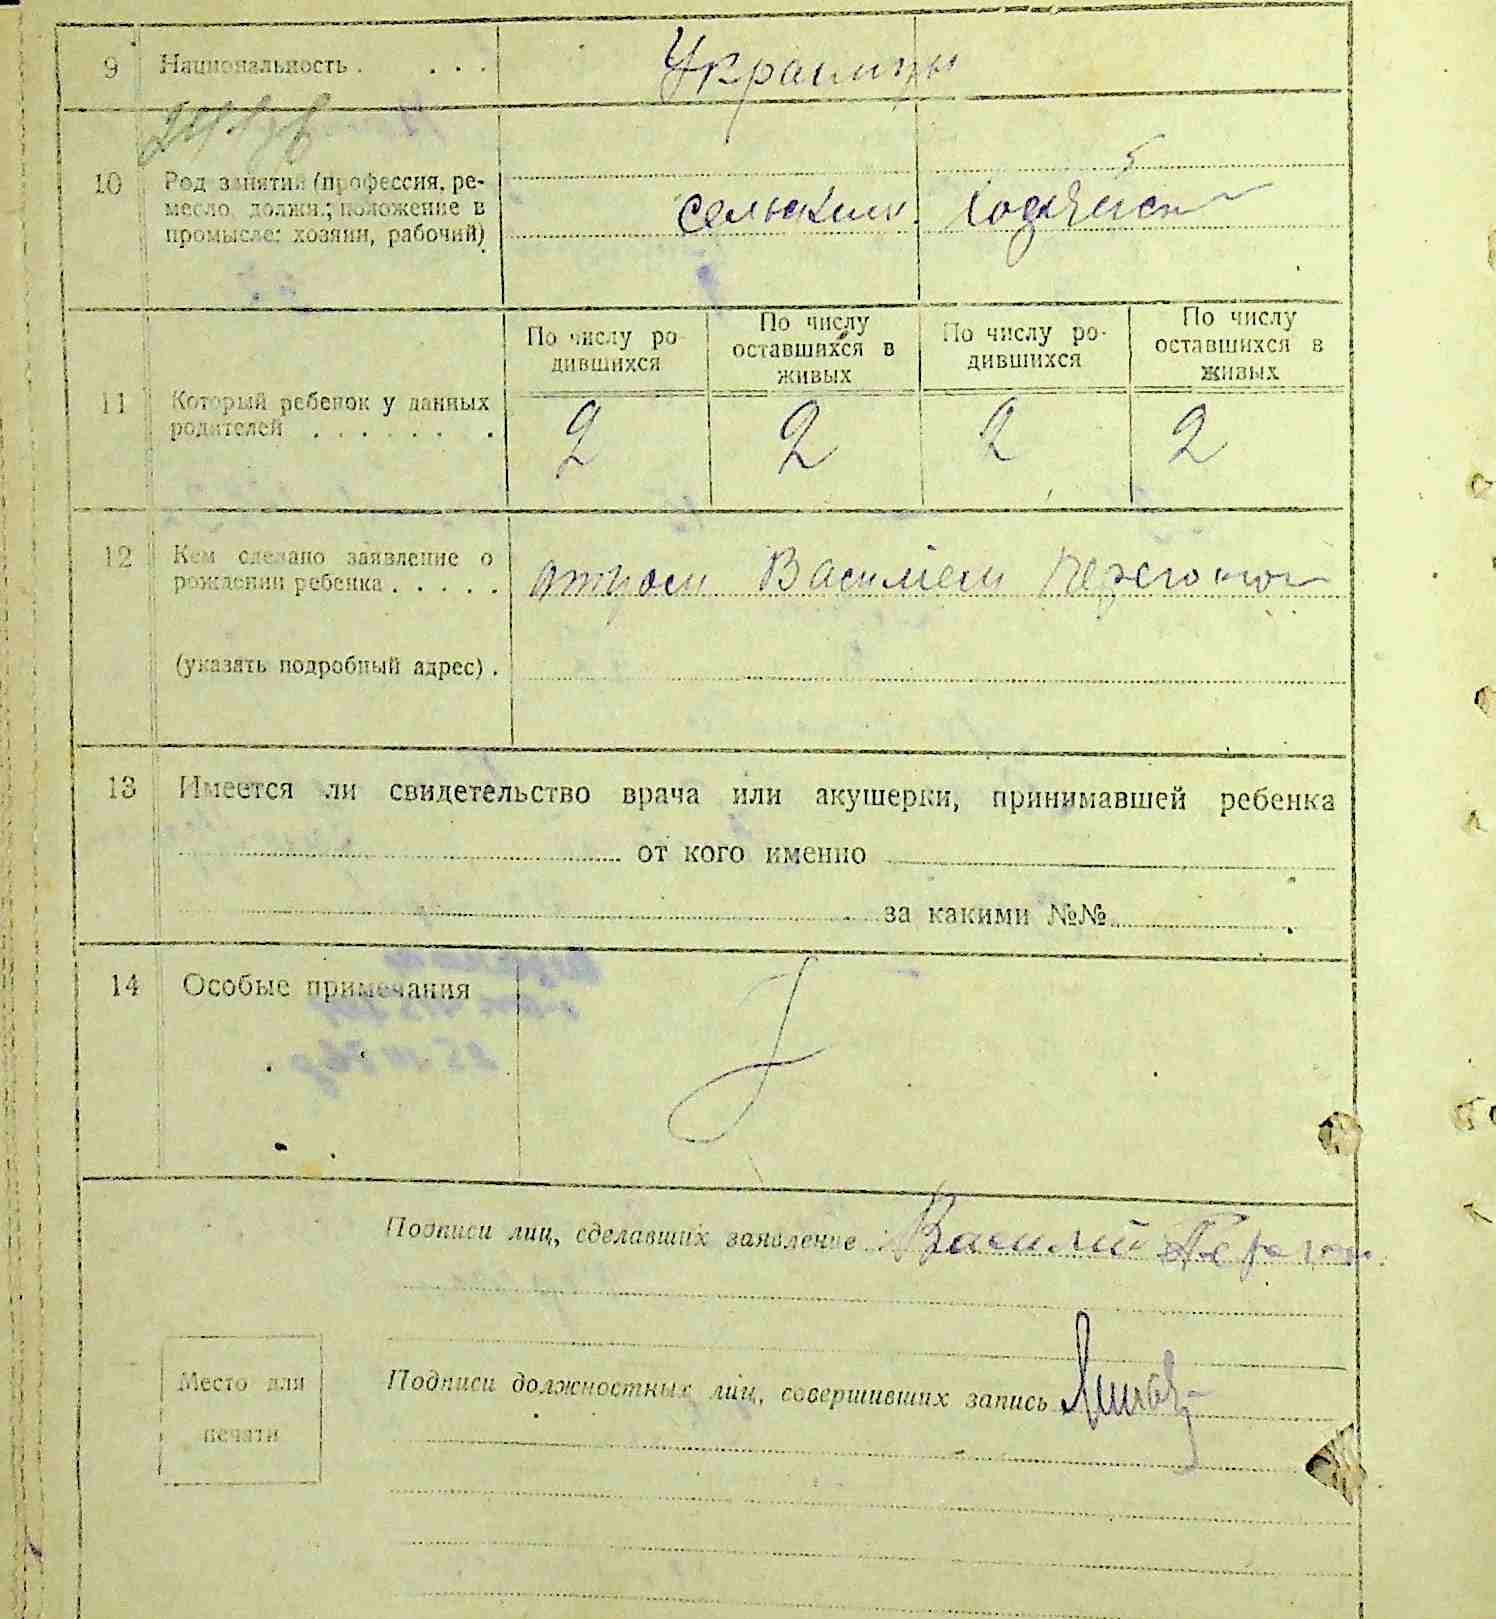 9 Национальность . . . . Украинцы
10 Род занятий (профессия, ре-
месло, должн.; положение в
промысле: хозяин, рабочий)
сельским
По числу ро-
дившихся
По числу
оставшихся в
живых
По числу ро-
дившихся
По числу
оставшихся в
живых
11 Который ребенок у данных
родителей . . . . . . .
2 2 2 2
12 Кем сделано заявление о
рождении ребенка . . . . . отцом Василием
(указать подробный адрес) .
13 Имеется ли свидетельство врача или акушерки, принимавшей ребенка
от кого именно
за какими №№
14 Особые примечания
Подписи лиц, сделавших заявление Василий
Подписи должностных лиц, совершивших запись
Место для
печати